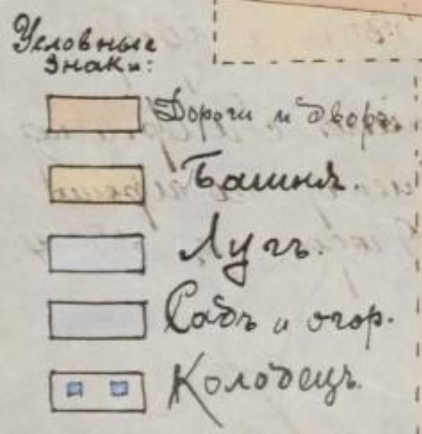 Условные
Знаки:
Дороги и дворъ.
Башня.
Лугъ.
Садъ и огор.
Колодецъ.